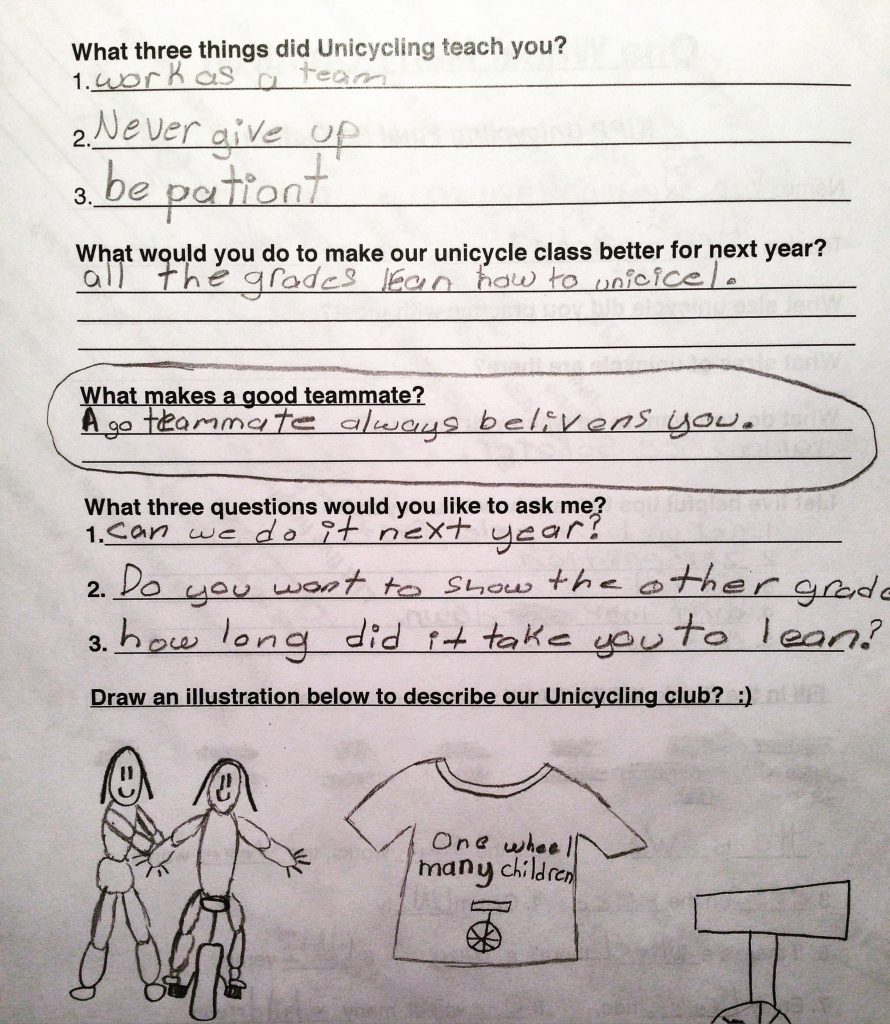 What three things did Unicycling teach you?
1. work as a team
2. Never give up
3. be pationt
What would you do to make our unicycle class better for next year?
all the grades lean how to unicicel.
What makes a good teammate?
A go teammate always belivens you.
What three questions would you like to ask me?
1. can we do it next year?
2. Do you want to show the other grade
3. how long did it take you to lean?
Draw an illustration below to describe our Unicycling club? :)
One wheel
many children